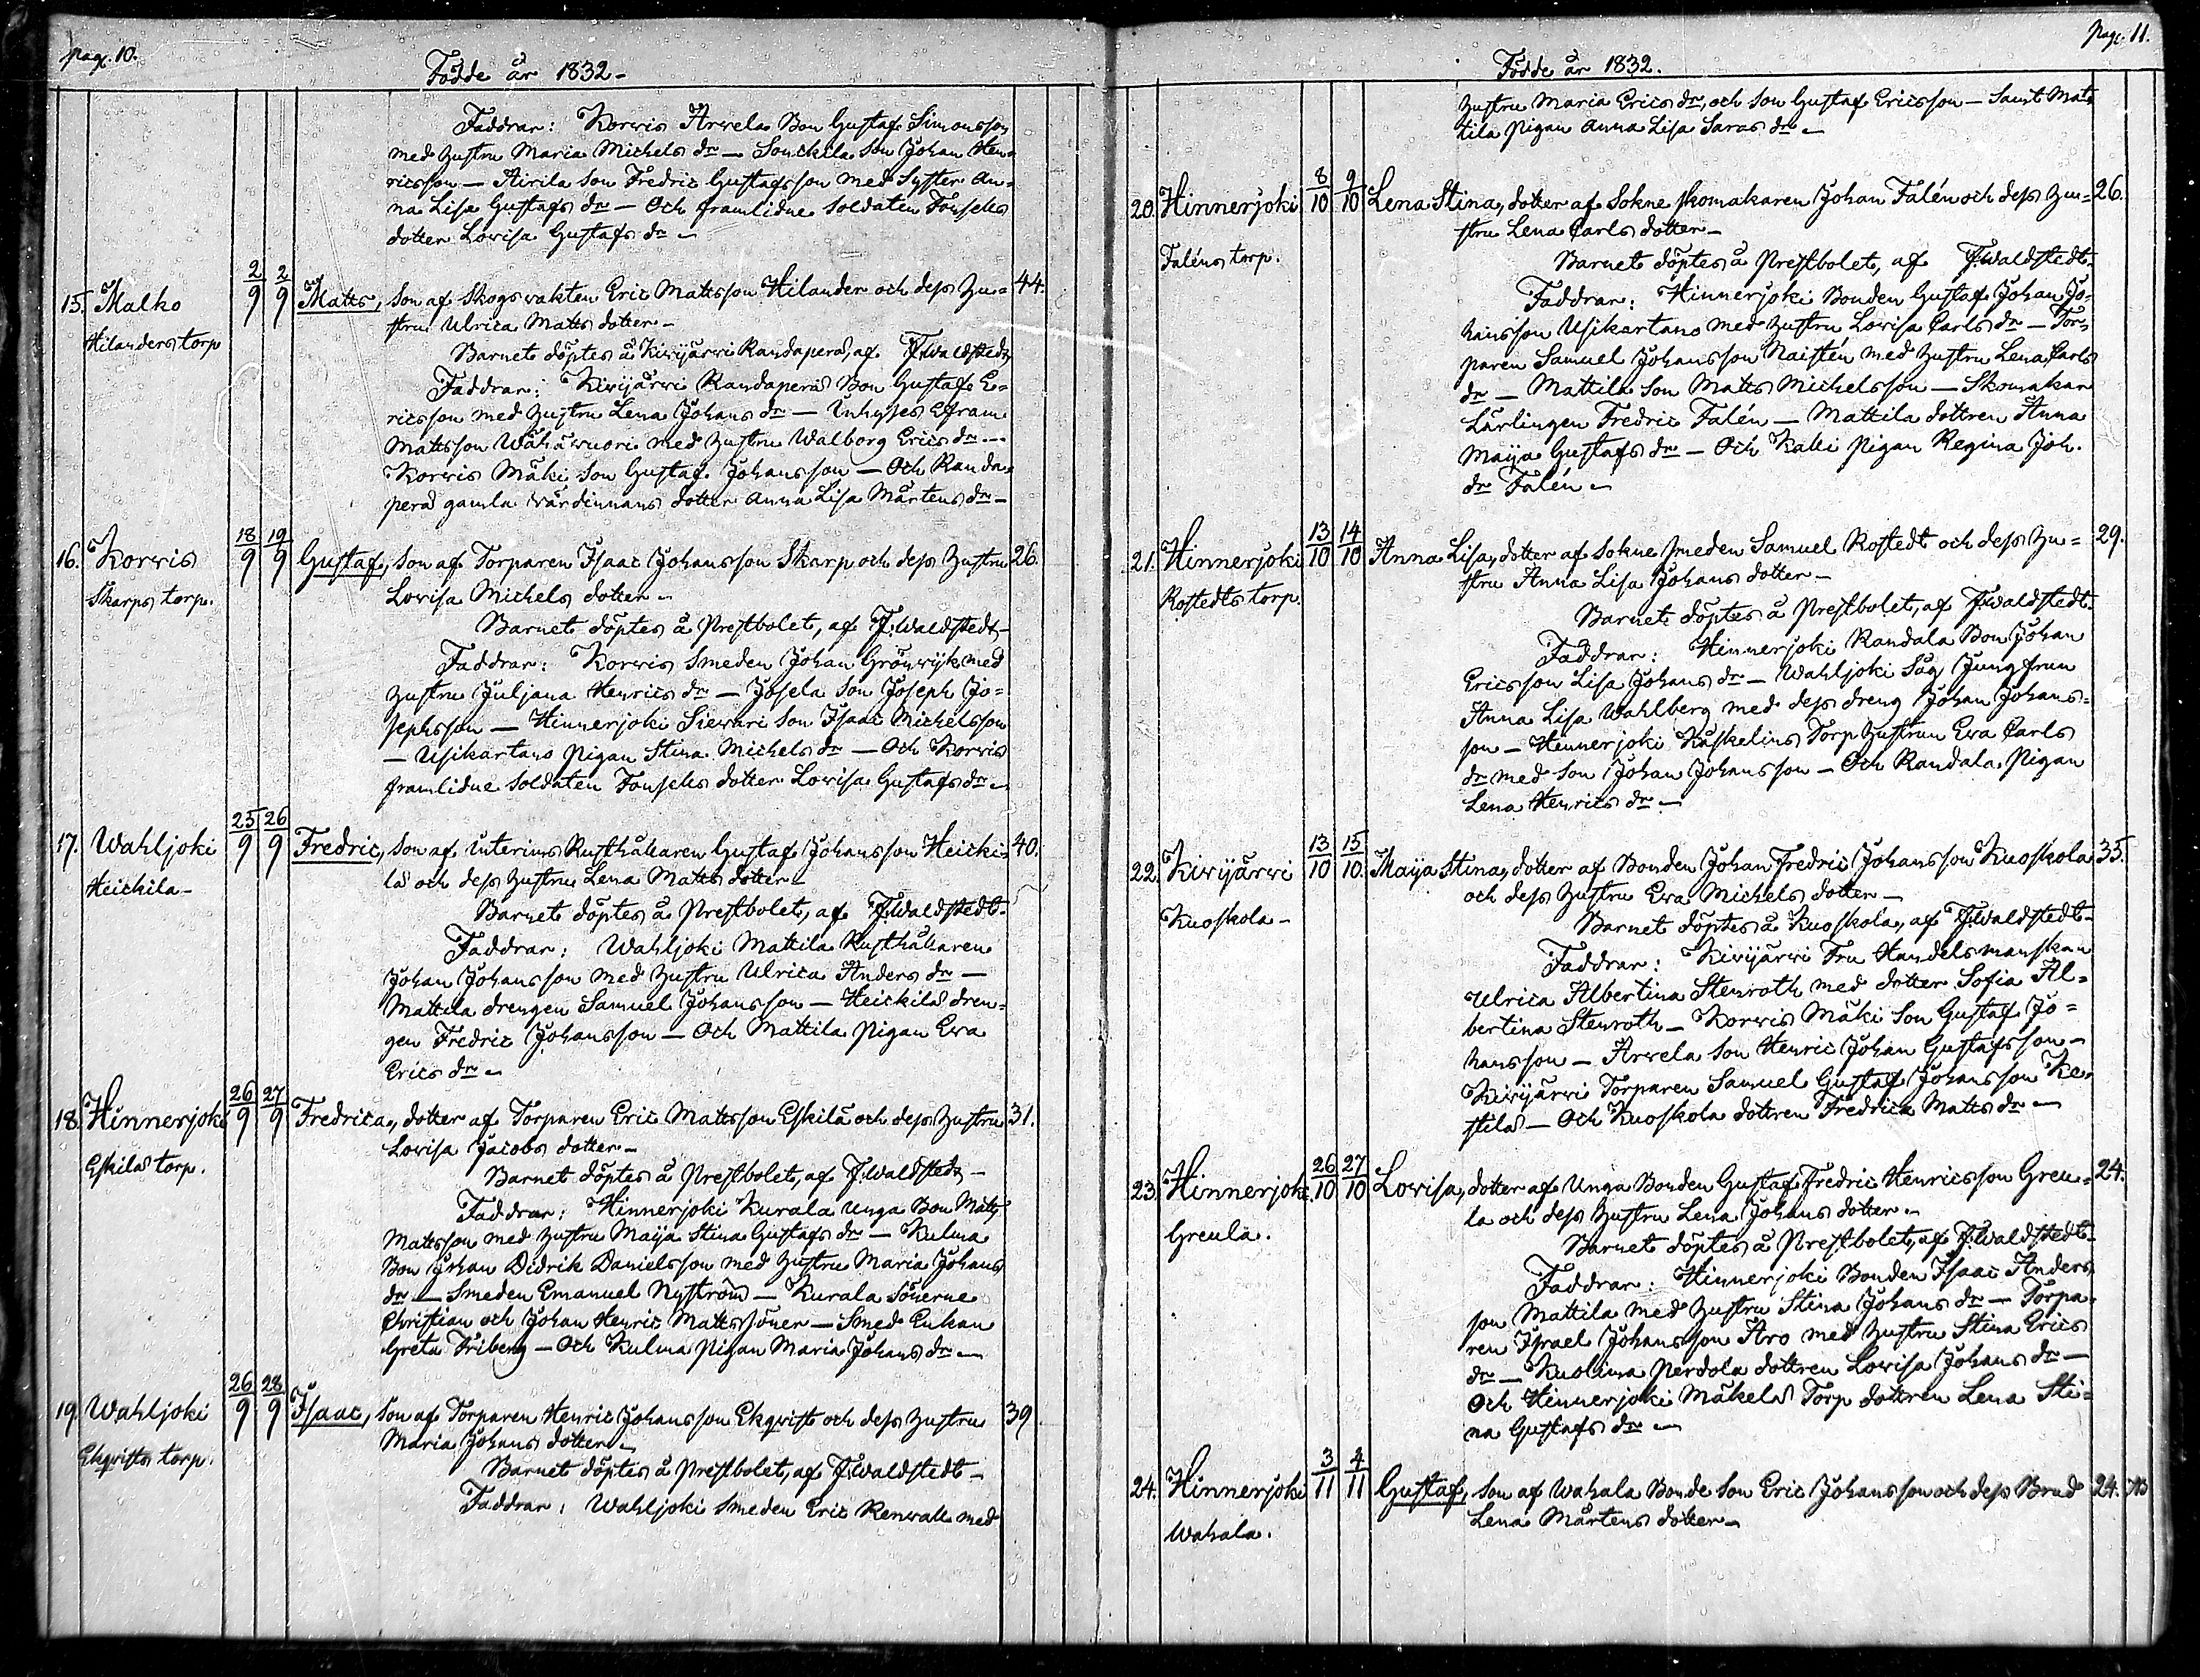 pag. 10.
Födde år 1832 –
Faddrar: Korwis Arwela Bon Gustaf Simonsson
med hustru Maria Michels dr – Sonckila Son Johan Hen=
ricsson – Airila Son Fredric Gustafsson med Syster An=
na Lisa Gustafs dr – Och framlidne Soldaten Fouschs
dotter Lovisa Gustafs dr –
15. Malko 2/9 2/9 Matts, Son af Skogswakten Eric Mattsson Hilander och dess Hu= 44.
Hilanders torp
stru Ulrica Matts dotter –
Barnet döptes å Kiwijärwi Randaperä, af F. Waldstedt
Faddrar: Kiwijärwi Randaperä Bon Gustaf E=
ricsson med hustru Lena Johans dr – Inhyses Efraim
Mattsson Wähäwuori med hustru Walborg Erics dr –
Korwis Mäki Son Gustaf Johansson – Och Randa=
perä gamla värdinnans dotter Anna Lisa Mårtens dr –
16. Korwis 18/9 19/9 Gustaf, Son af Torparen Isaac Johansson Skarp och dess Hustru 26.
Skarps torp.
Lovisa Michels dotter –
Barnet döptes å Prestbolet, af F. Waldstedt –
Faddrar: Korwis Smeden Johan Grönwijk med
hustru Juljana Henrics dr – Josela Son Joseph Jo=
sephsson – Hinnerjoki Siewari Son Isaac Michelsson
– Usikartano Pigan Stina Michels dr – Och Korwis
framlidne Soldaten Fouschs dotter Lovisa Gustafs dr –
17. Wahljoki 25/9 26/9 Fredric, Son af Interims Rusthållaren Gustaf Johansson Heicki= 40.
Heickila –
lä och dess hustru Lena Matts dotter –
Barnet döptes å Prestbolet, af F. Waldstedt –
Faddrar: Wahljoki Mattila Rusthållaren
Johan Johansson med hustru Ulrica Anders dr –
Mattila drengen Samuel Johansson – Heickilä dren=
gen Fredric Johansson – Och Mattila Pigan Eva
Erics dr –
18. Hinnerjoki 26/9 27/9 Fredrica, dotter af Torparen Eric Mattsson Eskilä och dess Hustru 31.
Eskilä torp.
Lovisa Jacobs dotter –
Barnet döptes å Prestbolet, af F. Waldstedt –
Faddrar: Hinnerjoki Kurala Unga Bon Matts
Mattsson med hustru Maija Stina Gustafs dr – Kulma
Bon Johan Didrik Danielsson med hustru Maria Johans
dr – Smeden Emanuel Nyström – Kurala Sönerne
Christian och Johan Henric Mattssöner – Smed Enkan
Greta Friberg – Och Kulma Pigan Maria Johans dr –
19. Wahljoki 26/9 28/9 Isaac, Son af Torparen Henric Johansson Ekqvist och dess Hustru 39
Ekqvists torp.
Maria Johans dotter –
Barnet döptes å Prestbolet, af F. Waldstedt –
Faddrar: Wahljoki Smeden Eric Renwall med
pag. 11.
Födde år 1832.
hustru Maria Erics dr, och Son Gustaf Ericsson – Samt Mat=
tila Pigan Anna Lisa Saras dr –
20. Hinnerjoki 8/10 9/10 Lena Stina, dotter af Sokne Skomakaren Johan Falén och dess Hu= 26.
stru Lena Carls dotter –
Faléns torp.
Barnet döptes å Prestbolet, af F. Waldstedt.
Faddrar: Hinnerjoki Bonden Gustaf Johan Jo=
hansson Usikartano med hustru Lovisa Carls dr – Tor=
paren Samuel Johansson Naistén med hustru Lena Carls
dr – Mattila Son Matts Michelsson – Skomakare
Lärlingen Fredric Falén – Mattila dottren Anna
Maija Gustafs dr – Och Kalli Pigan Regina Joh.
dr Falén –
21. Hinnerjoki 13/10 14/10 Anna Lisa, dotter af Sokne Smeden Samuel Rostedt och dess Hu= 29.
Rostedts torp.
stru Anna Lisa Johans dotter –
Barnet döptes å Prestbolet, af F. Waldstedt.
Faddrar: Hinnerjoki Randala Bon Johan
Ericsson Lisa Johans dr – Wahljoki Såg Jungfrun
Anna Lisa Wahlberg med dess dreng Johan Johans=
son – Hinnerjoki Kaskelins Torp Hustrun Eva Carls
dr med Son Johan Johansson – Och Randala Pigan
Lena Henrics dr –
22. Kiwijärwi 13/10 15/10 Maija Stina, dotter af Bonden Johan Fredric Johansson Kuoskola 35.
Kuoskola –
och dess hustru Eva Michels dotter –
Barnet döptes å Kuoskola, af F. Waldstedt –
Faddrar: Kiwijärwi Fru Handelsmanskan
Ulrica Albertina Stenroth med dotter Sofia Al=
bertina Stenroth – Korwis Mäki Son Gustaf Jo=
hansson – Arwela Son Henric Johan Gustafsson –
Kiwijärwi Torparen Samuel Gustaf Johansson Ke=
stilä – Och Kuoskola dottren Fredrica Matts dr –
23. Hinnerjoki 26/10 27/10 Lovisa, dotter af Unga Bonden Gustaf Fredric Henricsson Greu= 24.
Greula.
la och dess hustru Lena Johans dotter –
Barnet döptes å Prestbolet, af F. Waldstedt –
Faddrar: Hinnerjoki Bonden Isaac Anders
son Mattila med hustru Stina Johans dr – Torpa=
ren Israel Johansson Aro med hustru Stina Erics
dr – Kuolima Perdola dottren Lovisa Johans dr –
Och Hinnerjoki Mäkelä Torp dottren Lena Sti=
na Gustafs dr –
24. Hinnerjoki 3/11 4/11 Gustaf, Son af Wahala Bonde Son Eric Johansson och dess Brud 24.
Wahala.
Lena Mårtens dotter –